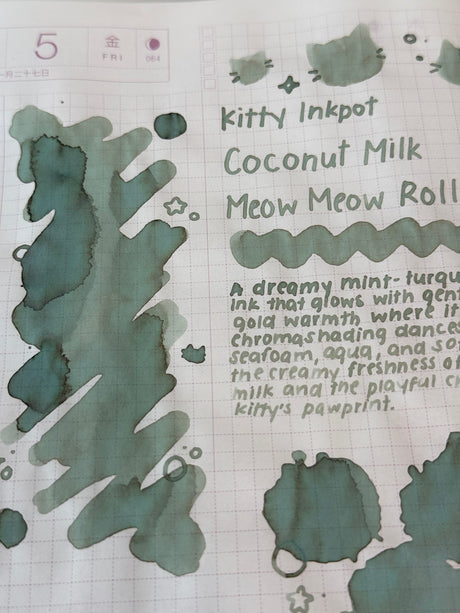 5
金
FRI
064
月二十七日
Kitty Inkpot
Coconut Milk
Meow Meow Roll
A dreamy mint-turqu
ink that glows with gent
gold warmth where it
chromashading dances
seafoam, aqua, and so
the creamy freshness of
milk and the playful c
kitty's pawprint.